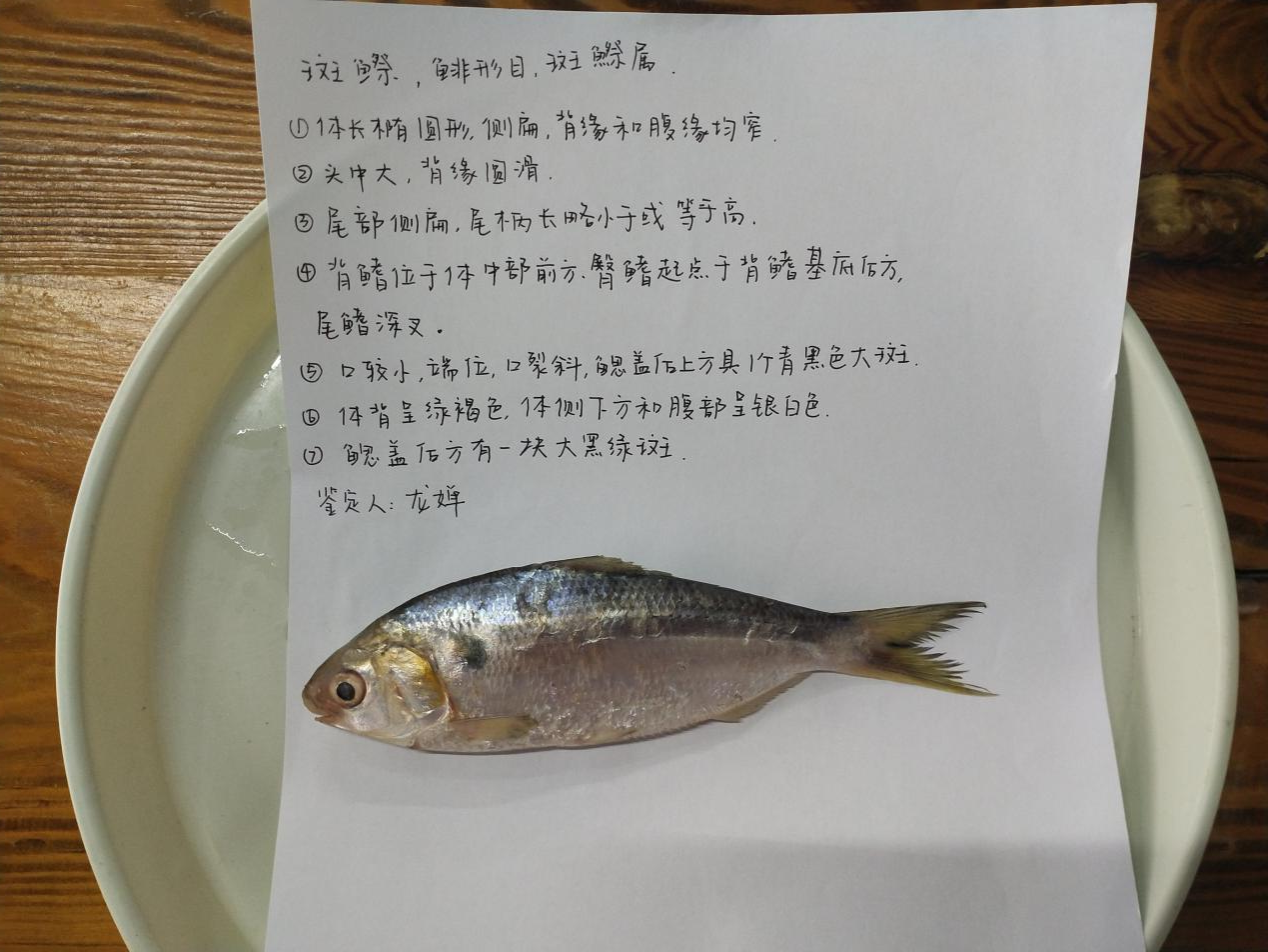 斑鰶，鲱形目，斑鰶属.
①体长椭圆形,侧扁,背缘和腹缘均窄.
②头中大,背缘圆滑.
③尾部侧扁,尾柄长略小于或等于高.
④背鳍位于体中部前方.臀鳍起点于背鳍基底后方,
尾鳍深叉。
⑤口较小,端位,口裂斜,鳃盖后上方具1个青黑色大斑.
⑥体背呈绿褐色,体侧下方和腹部呈银白色.
⑦鳃盖后方有一块大黑绿斑.
鉴定人:龙婵